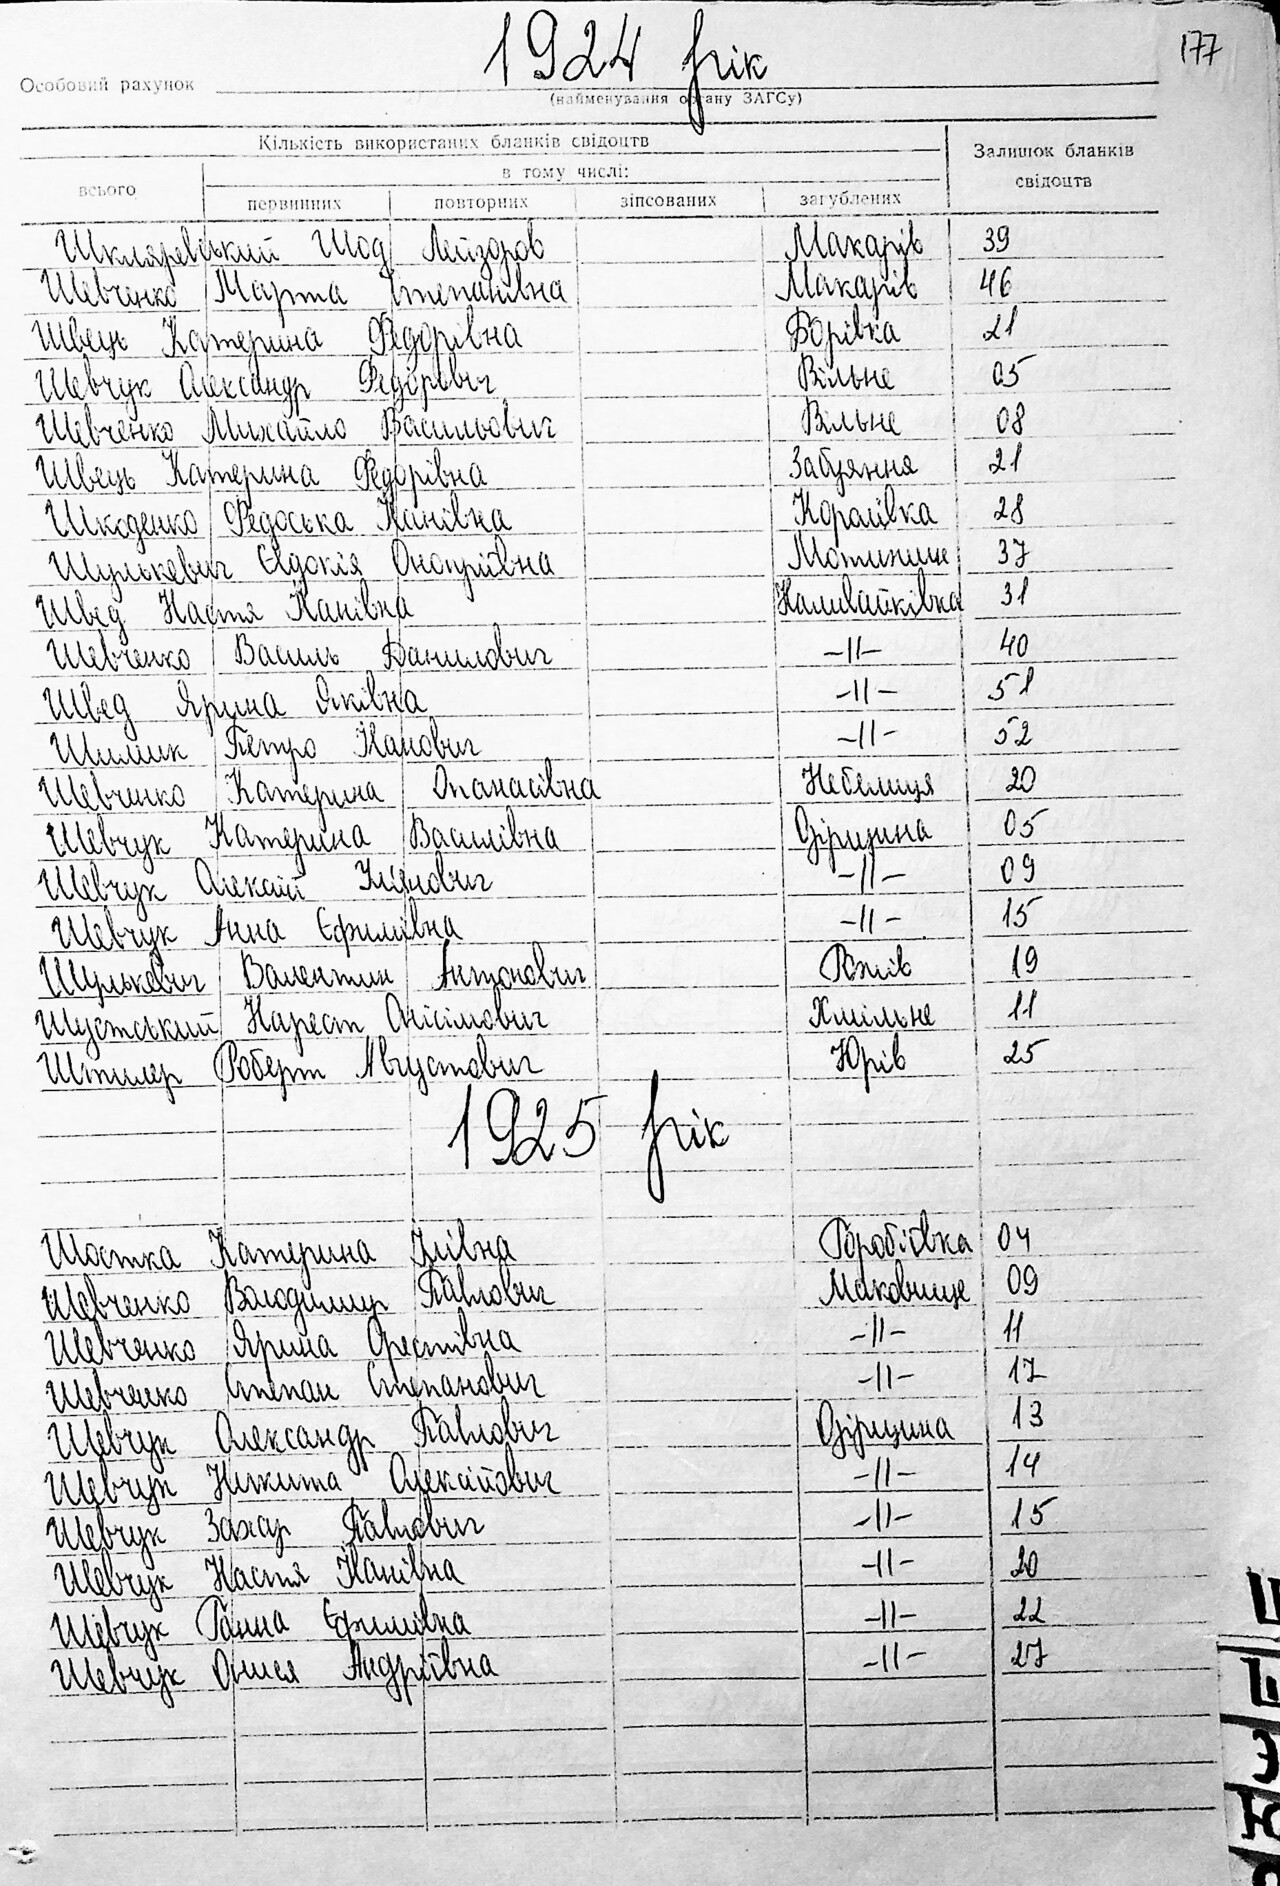 177
1924 рік
Особовий рахунок
(найменування органу ЗАГСу)
Кількість використаних бланків свідоцтв
Залишок бланків свідоцтв
всього
в тому числі:
первинних повторних зіпсованих загублених
Шкляревський Шод Лейзоров Макарів 39
Шевченко Марта Степанівна Макарів 46
Швець Катерина Федорівна 21
Шевчук Олександр Федорович Вільне 05
Шевченко Михайло Васильович Вільне 08
Швець Катерина Федорівна Забуяння 21
Шкоденко Федоська Іванівна Королівка 28
Шулькевич Євдокія Онопріївна Мотижин 37
Швед Настя Іванівна Наливайківка 31
Шевченко Василь Данилович -//- 40
Швед Ярина Яківна -//- 51
Петро Іванович -//- 52
Шевченко Катерина Опанасівна Небелиця 20
Шевчук Катерина Василівна 05
Шевчук Олексій -//- 09
Шевчук Анна Єфимівна -//- 15
Шулькевич Валентин Антонович 19
Шустський Онісімович Хмільне 11
Штилер Роберт Августович Юрів 25
1925 рік
Шостка Катерина Іллівна 04
Шевченко Володимир Павлович Маковище 09
Шевченко Ярина Орестівна -//- 11
Шевченко Степан Степанович -//- 17
Шевчук Олександр Павлович 13
Шевчук Никита Олексійович -//- 14
Шевчук Захар Павлович -//- 15
Шевчук Настя Іванівна -//- 20
Шевчук Ганна Єфимівна -//- 22
Шевчук Андріївна -//- 27